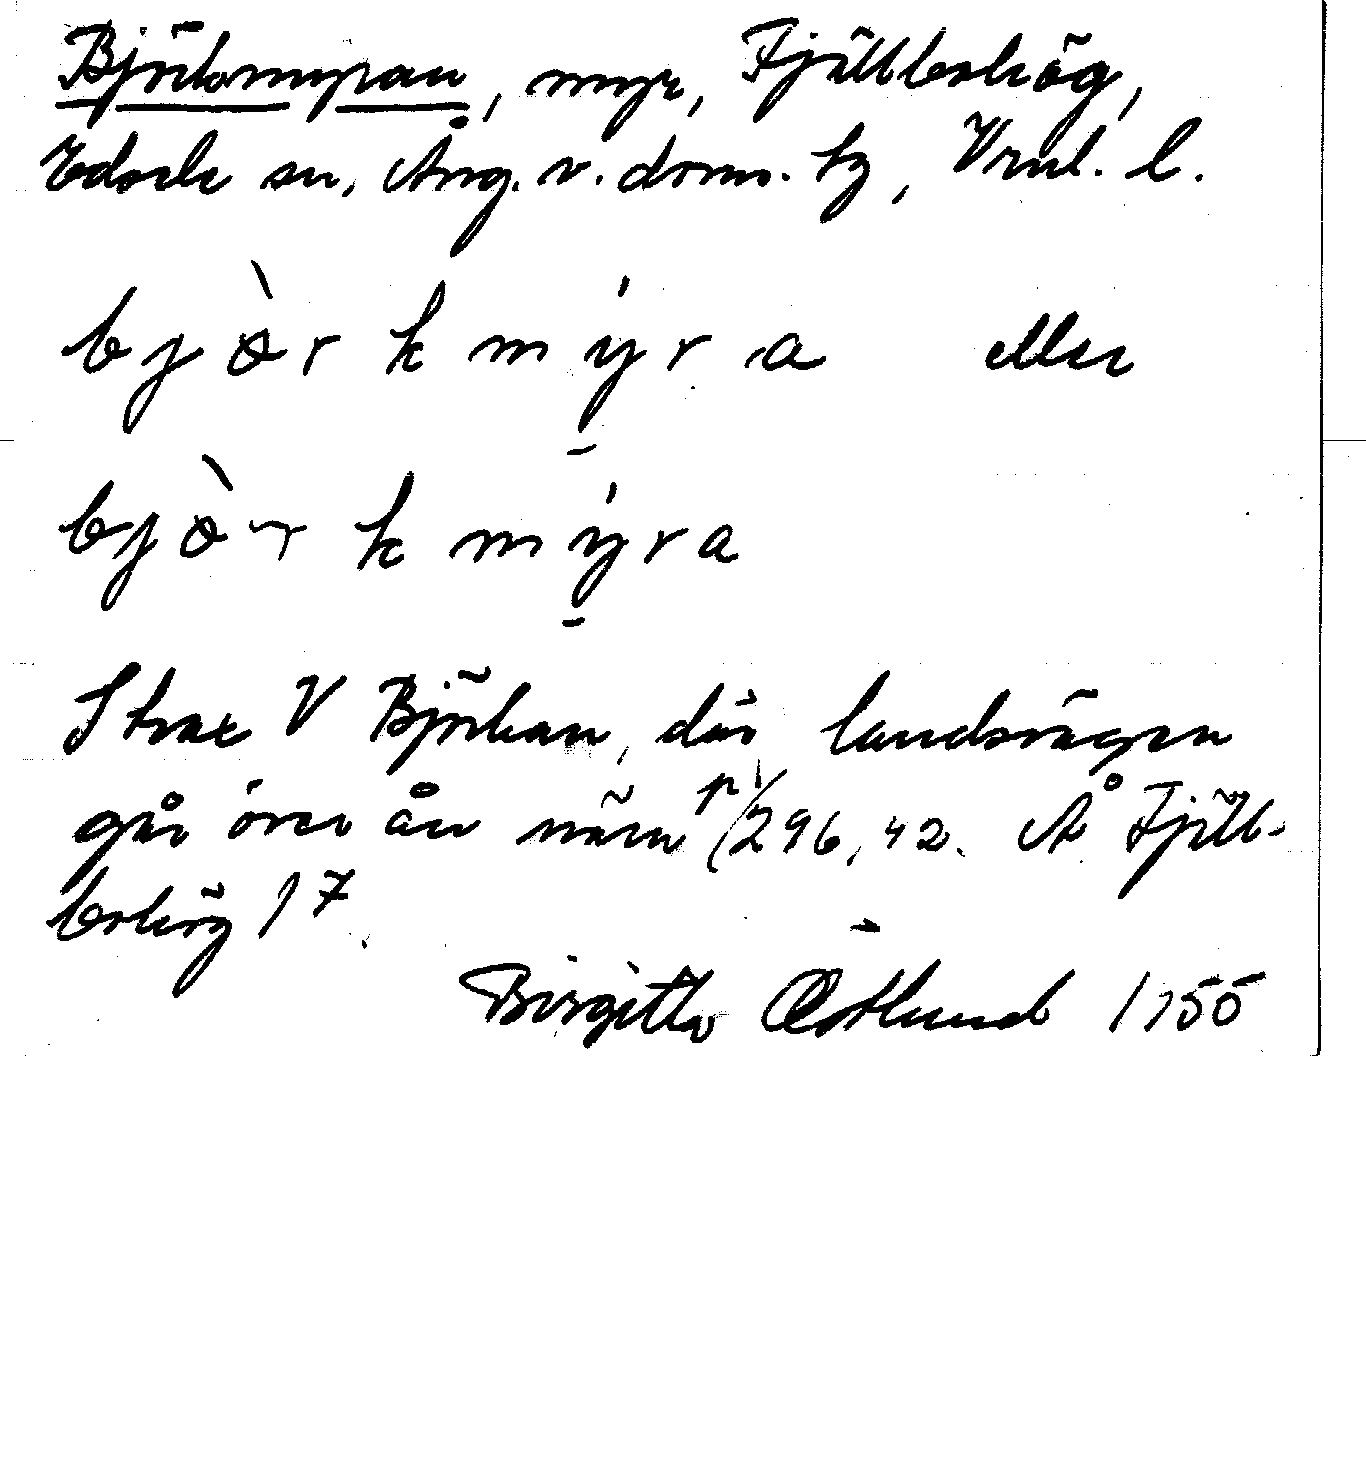 Björkmyran, myr, Fjällbohög,
Edsele sn, Ång. v. doms. tg, Vrnl. l.
bjòrkmýra eller
bjòrkmýra
Strax V Björkan, där landsvägen
går över ån nära p 296,42. Å Fjäll-
bohög 17
Birgitta Östlund 1955